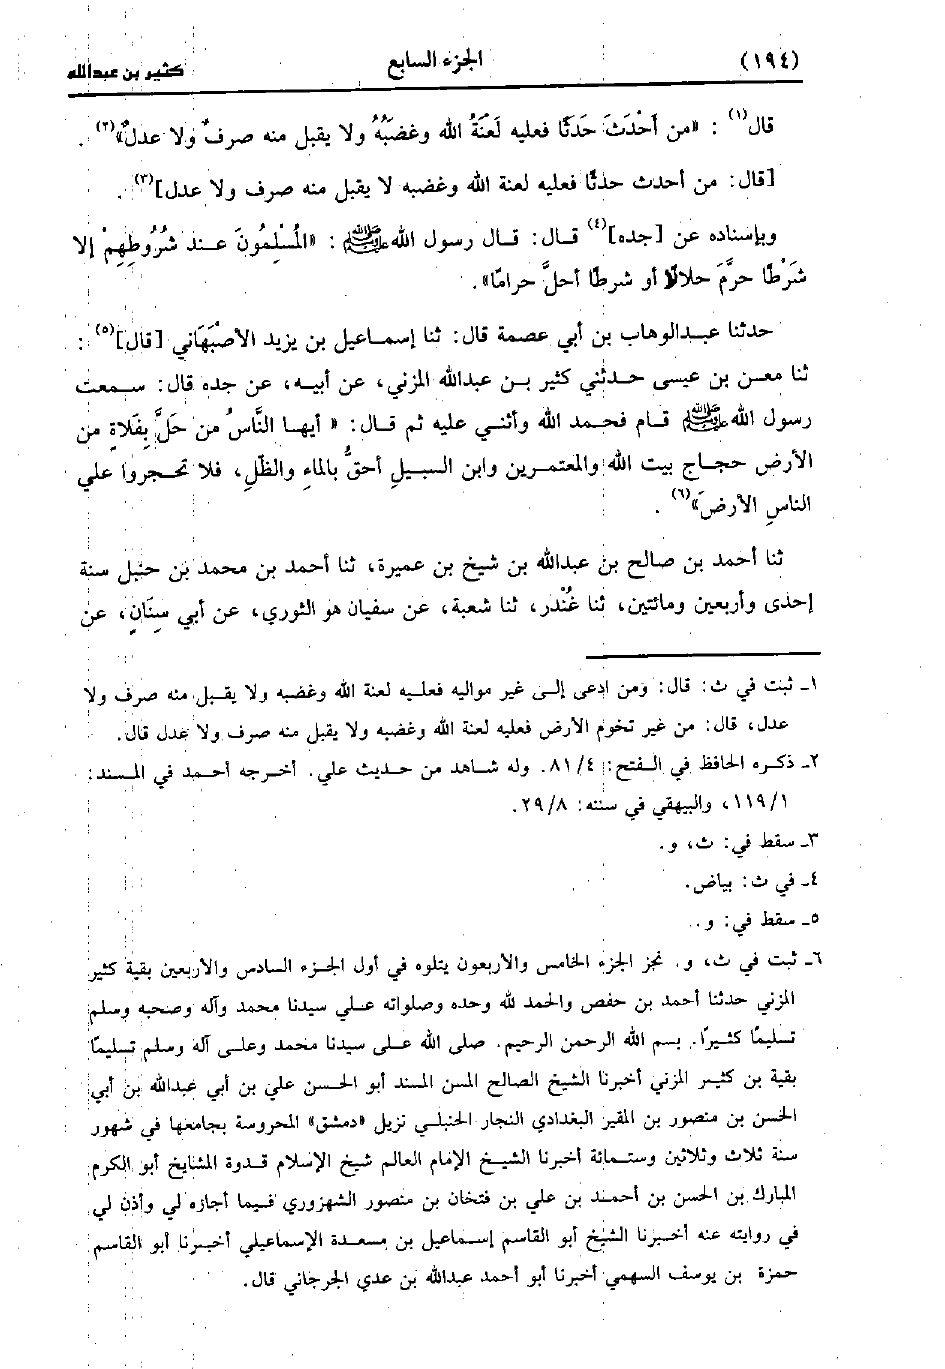 (١٩٤) الجزء السابع كثير بن عبدالله
قال(١) : «من أَحْدَثَ حَدَثًا فعليه لَعْنَةُ الله وغضَبُهُ ولا يقبل منه صرفٌ ولا عدلٌ»(٢) .
[قال: من أحدث حدثًا فعليه لعنة الله وغضبه لا يقبل منه صرف ولا عدل](٣) .
وبإسناده عن [جده](٤) قال: قال رسول الله ﷺ : «المُسْلِمُونَ عند شُرُوطِهِمْ إلا
شَرْطًا حرَّمَ حلالًا أو شرطًا أحلَّ حرامًا» .
حدثنا عبدالوهاب بن أبي عصمة قال: ثنا إسماعيل بن يزيد الأصْبَهَاني [قال](٥) :
ثنا معن بن عيسى حدثني كثير بن عبدالله المزني، عن أبيه، عن جده قال: سمعت
رسول الله ﷺ قام فحمد الله وأثنى عليه ثم قال: « أيها النَّاسُ من حَلَّ بِفَلاةٍ من
الأرض حجاج بيت الله والمعتمرين وابن السبيلِ أحقُّ بالماءِ والظّلِ، فلا تحجروا علي
الناسِ الأرضَ»(٦) .
ثنا أحمد بن صالح بن عبدالله بن شيخ بن عميرة، ثنا أحمد بن محمد بن حنبل سنة
إحدى وأربعين ومائتين، ثنا غُنْدر، ثنا شعبة، عن سفيان هو الثوري، عن أبي سِنَانٍ، عن
١ـ ثبت في ث: قال: ومن ادعى إلى غير مواليه فعليه لعنة الله وغضبه ولا يقبل منه صرف ولا
عدل، قال: من غير تخوم الأرض فعليه لعنة الله وغضبه ولا يقبل منه صرف ولا عدل قال.
٢ـ ذكره الحافظ في الفتح: ٨١/٤. وله شاهد من حديث علي. أخرجه أحمد في المسند:
١١٩/١، والبيهقي في سننه: ٢٩/٨.
٣ـ سقط في: ث، و.
٤ـ في ث: بياض.
٥ـ سقط في: و.
٦ـ ثبت في ث، و. نجز الجزء الخامس والأربعون يتلوه في أول الجزء السادس والأربعين بقية كثير
المزني حدثنا أحمد بن حفص والحمد لله وحده وصلواته علي سيدنا محمد وآله وصحبه وسلم
تسليمًا كثيرًا. بسم الله الرحمن الرحيم. صلى الله على سيدنا محمد وعلى آله وسلم تسليمًا
بقية بن كثير المزني أخبرنا الشيخ الصالح المسن المسند أبو الحسن علي بن أبي عبدالله بن أبي
الحسن بن منصور بن المقير البغدادي النجار الحنبلي نزيل «دمشق» المحروسة بجامعها في شهور
سنة ثلاث وثلاثين وستمائة أخبرنا الشيخ الإمام العالم شيخ الإسلام قدوة المشايخ أبو الكرم
المبارك بن الحسن بن أحمد بن علي بن فتخان بن منصور الشهزوري فيما أجازه لي وأذن لي
في روايته عنه أخبرنا الشيخ أبو القاسم إسماعيل بن مسعدة الإسماعيلي أخبرنا أبو القاسم
حمزة بن يوسف السهمي أخبرنا أبو أحمد عبدالله بن عدي الجرجاني قال.